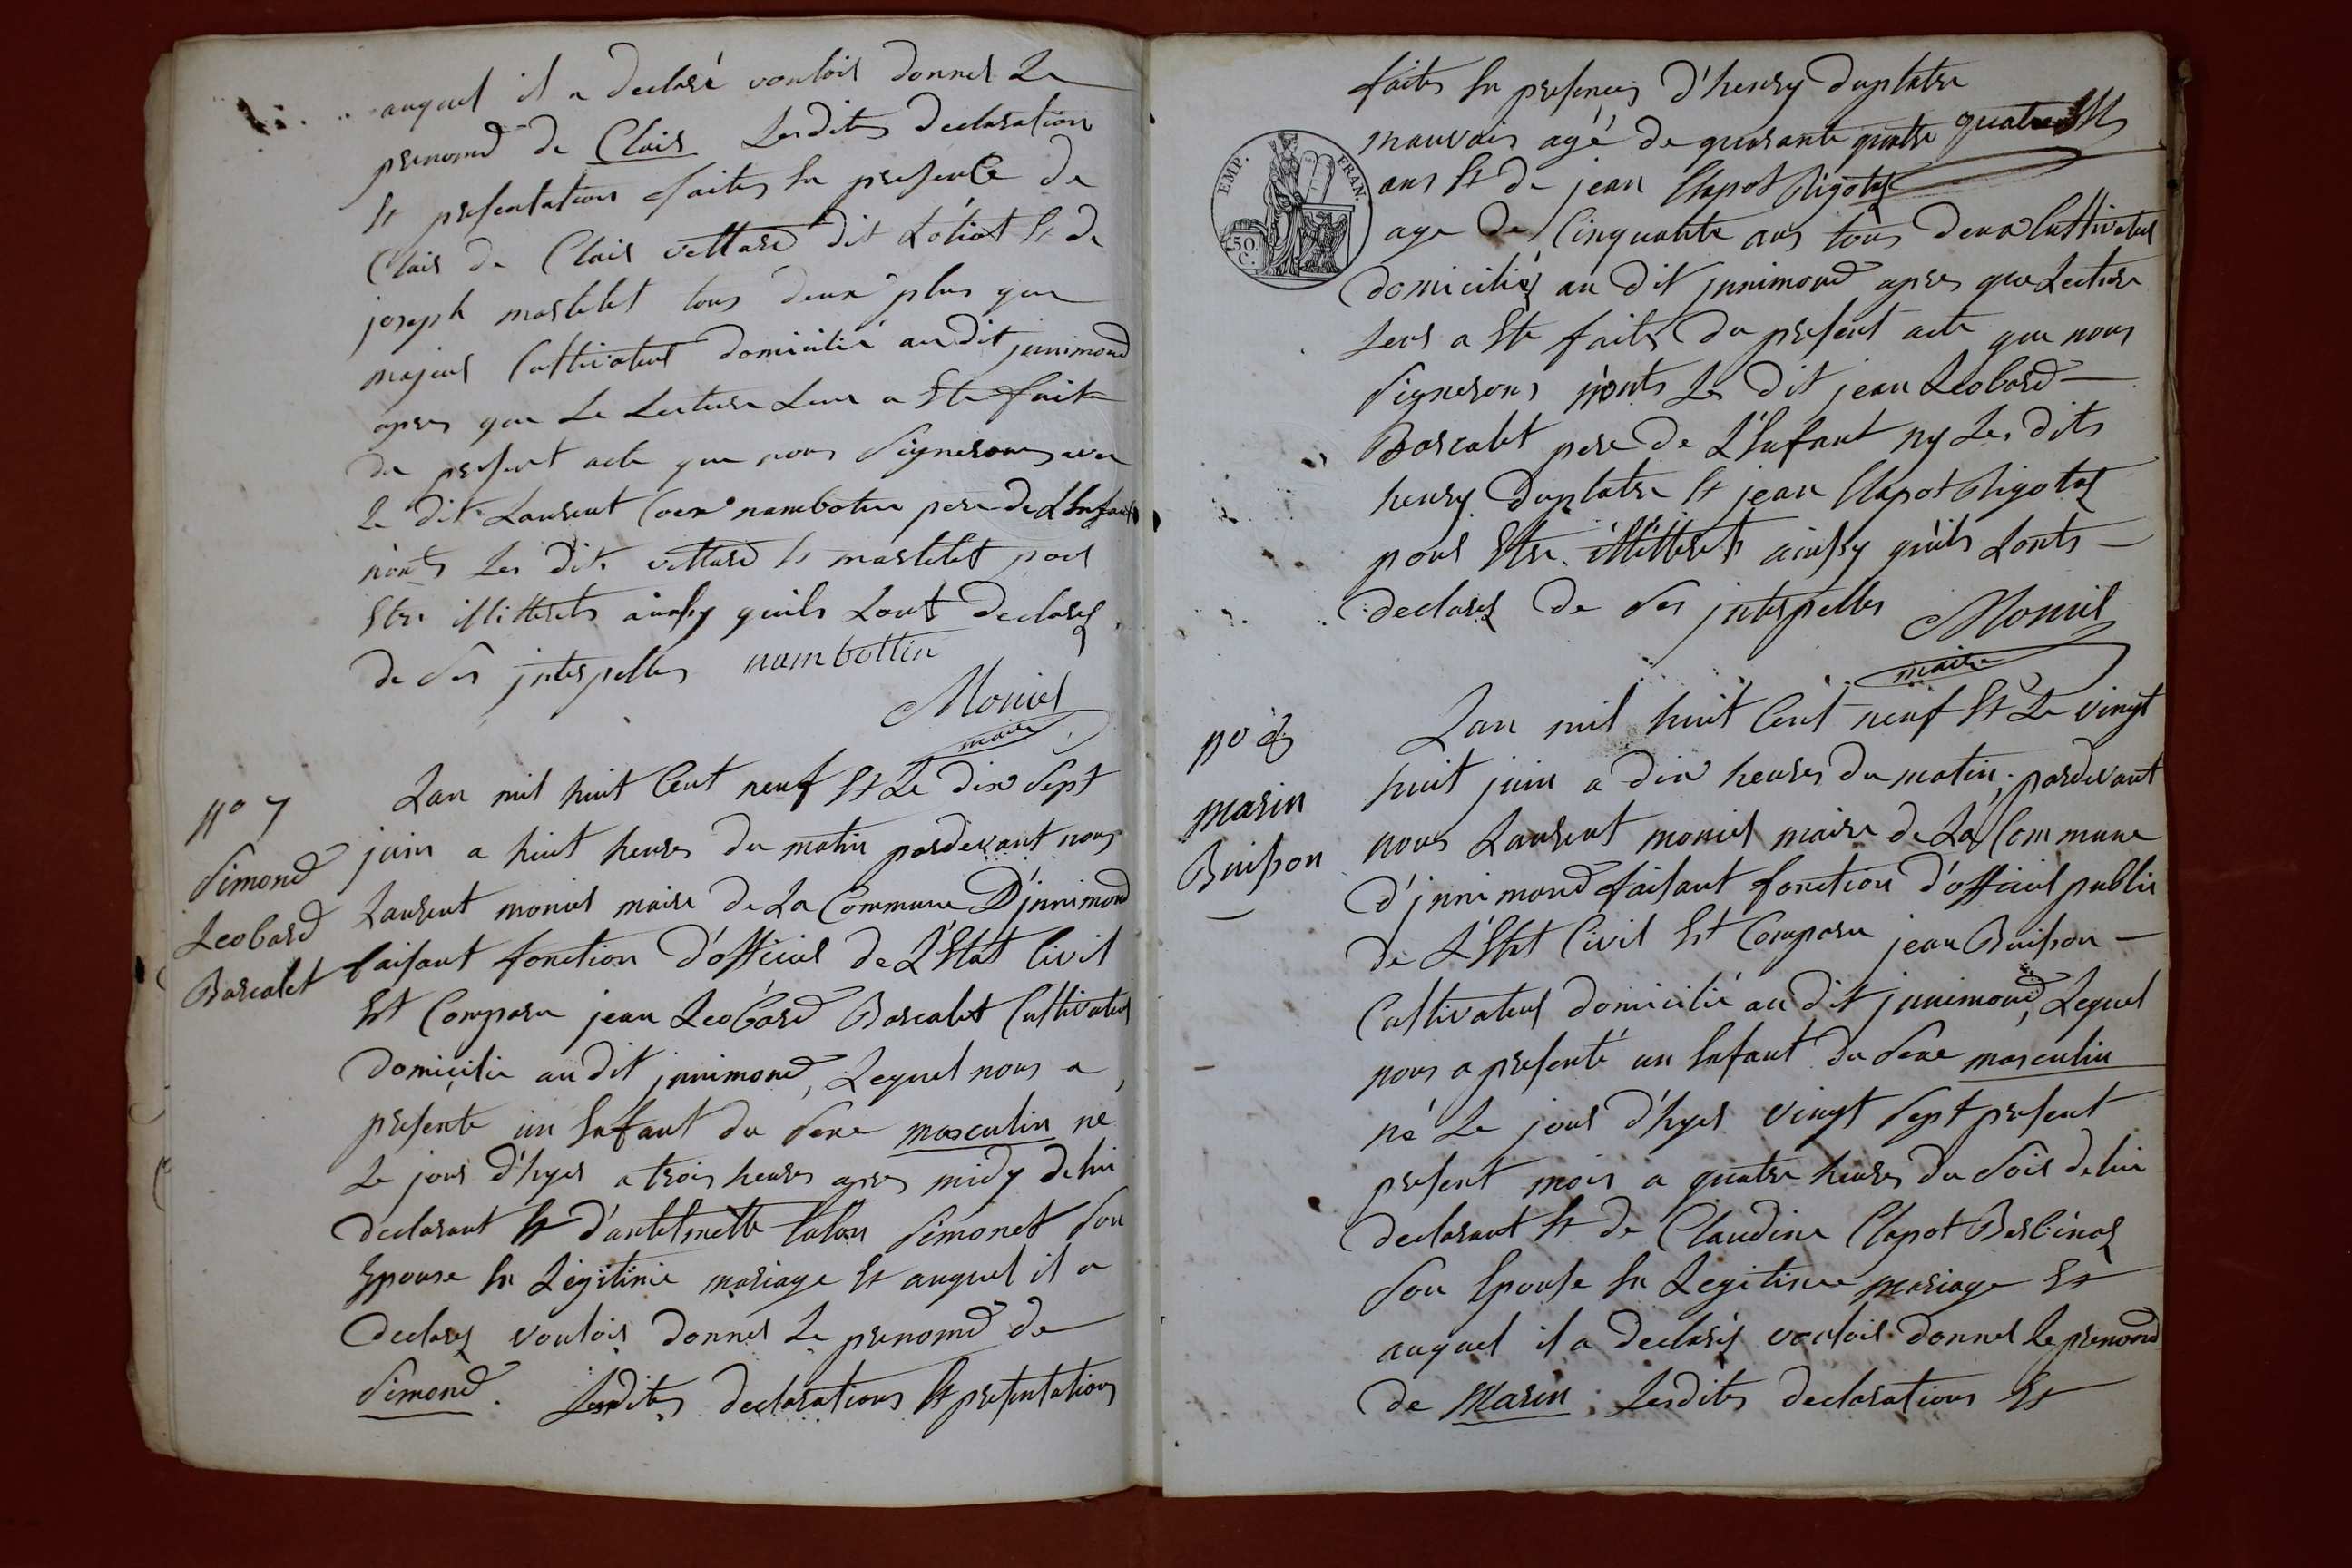 auquel il a declaré vouloir donner Le
prenomd de Clair Lesdites declaration
Et presentation faites En presence de
Clair de Clair vettard dit Lotiot Et de
joseph martelet tous deux plus que
majeur Cultivateur domicilié au dit jnnimond
apres que La Lecture Leur a Ete faite
du present acte que nous Signerons avec
Le dit Laurent nambotin pere de L'Enfant
n'onts Les dits vettard Et martelet pour
Etre illitterets ainsy quils Lont declarez
de Ses jnterpelles nambottin
Monier
maire
no 7
Simond
Leobard
Bascalet
Lan mil huit Cent neuf Et Le dix Sept
juin a huit heures du matin pardevant nous
Laurent monier maire de La Commune D'jnnimond
faisant fonction d'officier de L'Etat Civil
Est Comparu jean Leobard Bascalet Cultivateur
domicilie au dit jnnimond, Lequel nous a
presente un Enfant du Sexe masculin ne
Le jour d'hyer a trois heures apres midy de lui
declarant Et d'antelmette Simonet Son
Epouse En Légitime mariage Et auquel il a
declarez vouloir donner Le prenomd de
Simond. Lesdites declarations Et presentations
faites En presences d'henry duplatre
mauvais agé de quarante quatre quatre
ans Et de jean Clapot Rigotaz
age de Cinquante ans tous deux Cultivateur
domiciliez au dit jnnimond apres que Lecture
Leur a Ete faites du present acte que nous
Signerons n'onts Le dit jean Leobard
Bascalet pere de L'Enfant ny Les dits
henry duplatre Et jean Clapot Rigotaz
pour Etre illitterets ainsy quils Lonts
declarez de Ses jnterpelles Monier
maire
EMP. FRAN.
50.
C.
no 8
Marin
Buisson
Lan mil huit Cent neuf Et Le vingt
huit juin a dix heures du matin, pardevant
nous Laurent monier maire de La Commune
d'jnnimond faisant fonction d'officier public
de L'Etat Civil Est Comparu jean Buisson
Cultivateur domicilié au dit jnnimond, Lequel
nous a presenté un Enfant du Sexe masculin
né Le jour d'hyer vingt Sept present
present mois a quatre heures du Soir de lui
declarant Et de Claudine Clapot Berlinaz
Son Epouse En Legitime mariage Et
auquel il a declaréz vouloir donner le prenomd
de Marin; Lesdites declarations Et